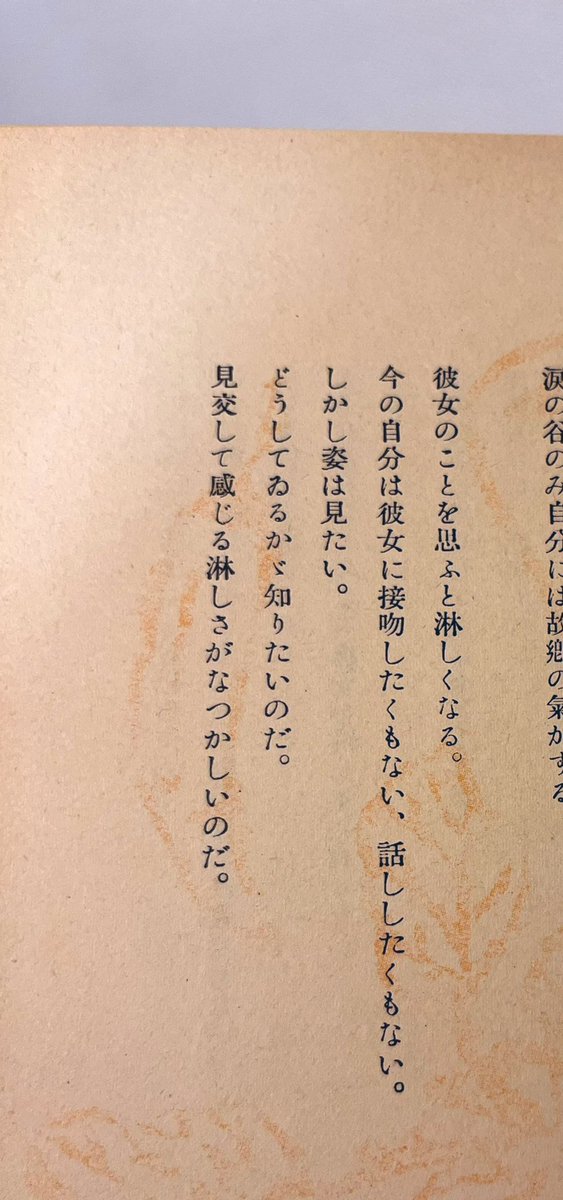 涙の谷のみ自分には故鄕の氣がする
彼女のことを思ふと淋しくなる。
今の自分は彼女に接吻したくもない、話ししたくもない。
しかし姿は見たい。
どうしてゐるかゞ知りたいのだ。
見交して感じる淋しさがなつかしいのだ。